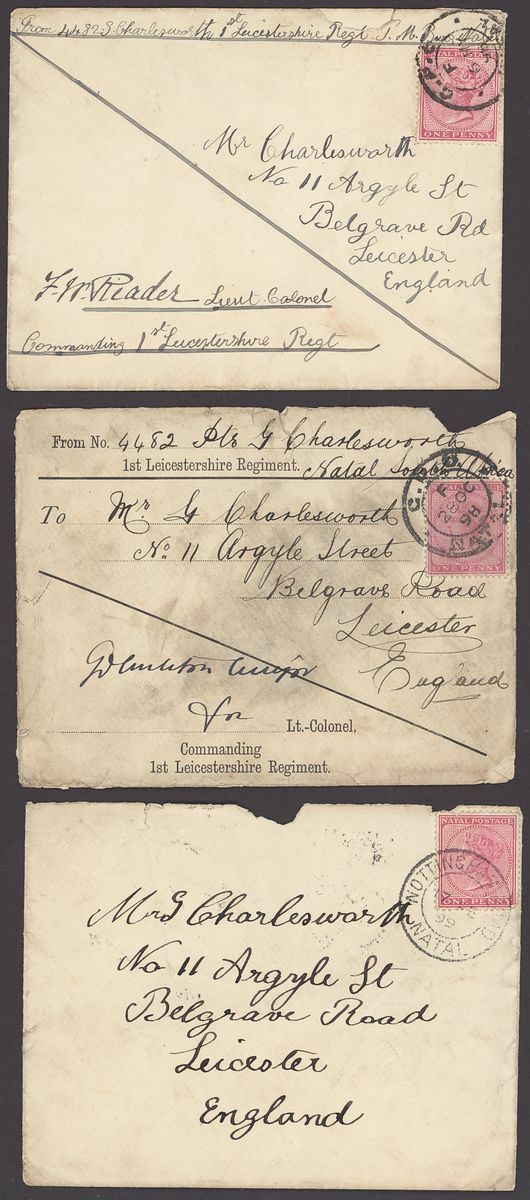 From 4482 G. Charlesworth, 1st Leicestershire Regt
ONE PENNY
Mr Charlesworth
No 11 Argyle St
Belgrave Rd
Leicester
England
F. W. Reader Lieut Colonel
Commanding 1st Leicestershire Regt
From No. 4482 Pte G Charlesworth
1st Leicestershire Regiment. Natal South Africa
NATAL POSTAGE
G.P.O.
28 OC
98
ONE PENNY
To Mr G Charlesworth
No 11 Argyle Street
Belgrave Road
Leicester
England
Major
for Lt.-Colonel,
Commanding
1st Leicestershire Regiment.
NATAL POSTAGE
ONE PENNY
NOTTINGHAM
NATAL
Mr G Charlesworth
No 11 Argyle St
Belgrave Road
Leicester
England